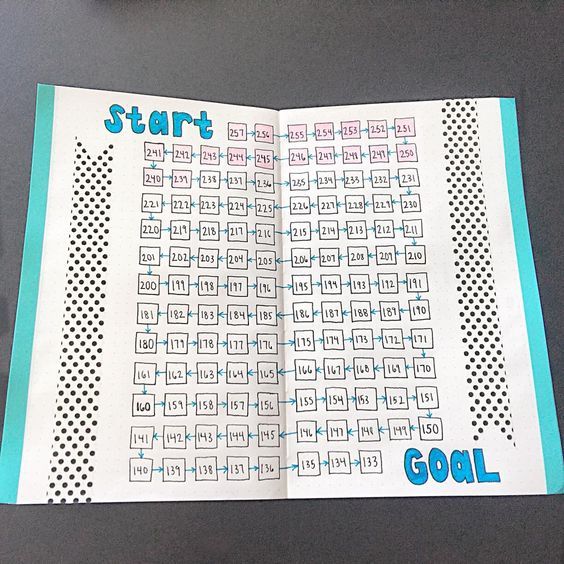 Start
257 256 255 254 253 252 251
241 242 243 244 245 246 247 248 249 250
240 239 238 237 236 235 234 233 232 231
221 222 223 224 225 226 227 228 229 230
220 219 218 217 216 215 214 213 212 211
201 202 203 204 205 206 207 208 209 210
200 199 198 197 196 195 194 193 192 191
181 182 183 184 185 186 187 188 189 190
180 179 178 177 176 175 174 173 172 171
161 162 163 164 165 166 167 168 169 170
160 159 158 157 156 155 154 153 152 151
141 142 143 144 145 146 147 148 149 150
140 139 138 137 136 135 134 133
GOAL